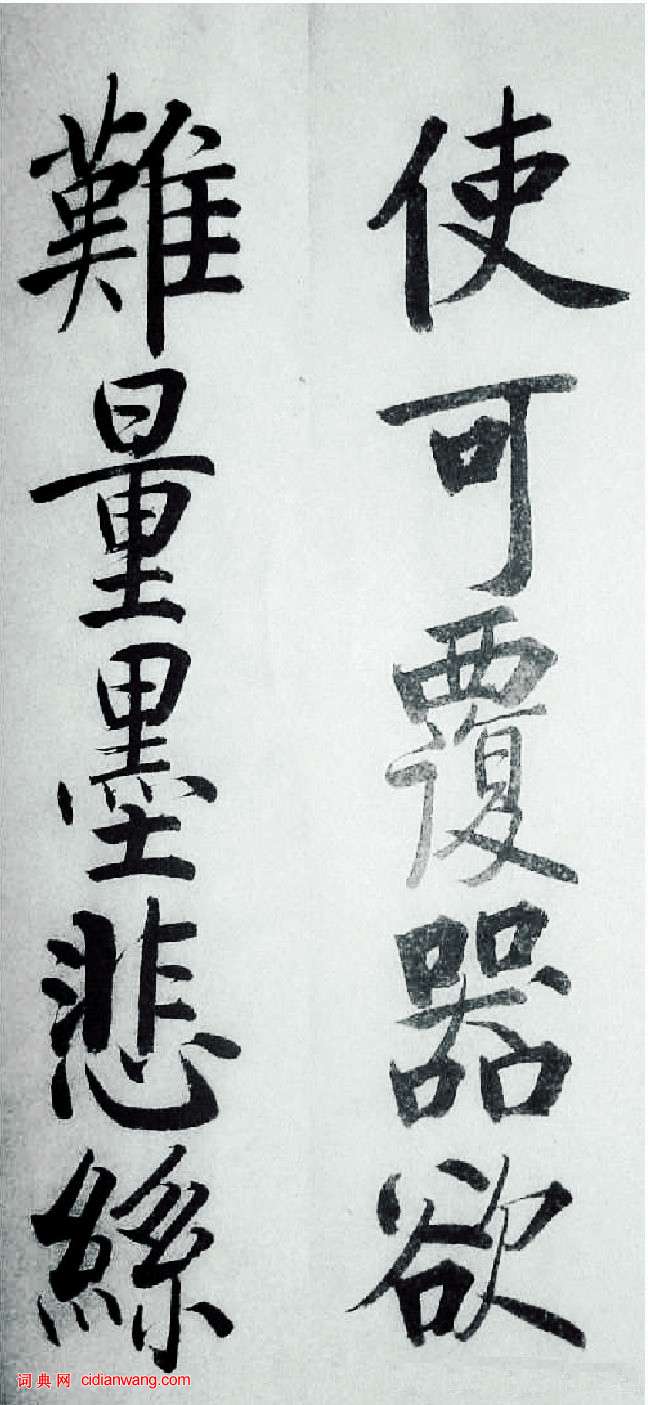 使可覆器欲
難量墨悲絲
词典网 cidianwang.com